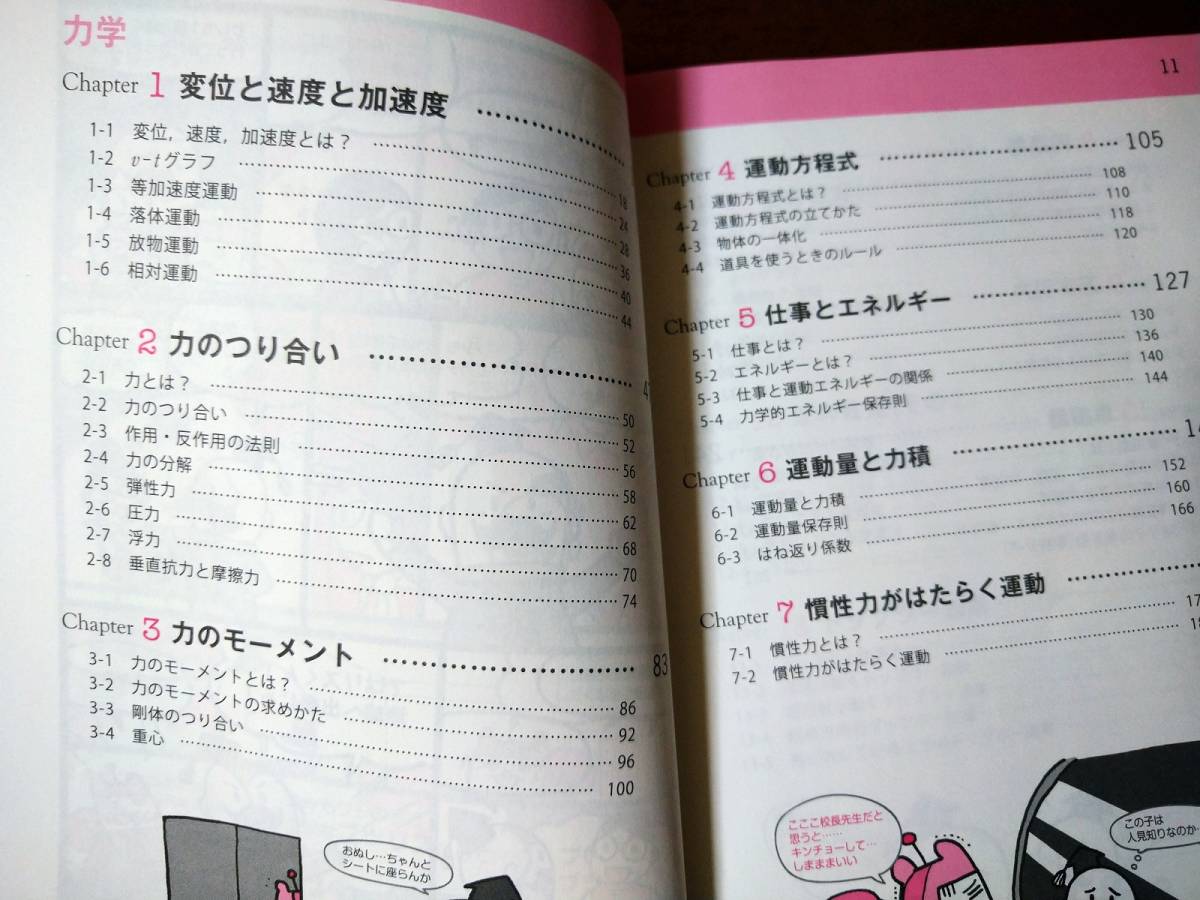 力学
Chapter 1 変位と速度と加速度
1-1 変位，速度，加速度とは？ 18
1-2 v-tグラフ 24
1-3 等加速度運動 28
1-4 落体運動 36
1-5 放物運動 40
1-6 相対運動 44
Chapter 2 力のつり合い
2-1 力とは？ 50
2-2 力のつり合い 52
2-3 作用・反作用の法則 56
2-4 力の分解 58
2-5 弾性力 62
2-6 圧力 68
2-7 浮力 70
2-8 垂直抗力と摩擦力 74
Chapter 3 力のモーメント 83
3-1 力のモーメントとは？ 86
3-2 力のモーメントの求めかた 92
3-3 剛体のつり合い 96
3-4 重心 100
おぬし…ちゃんと
シートに座らんか
11
Chapter 4 運動方程式 105
4-1 運動方程式とは？ 108
4-2 運動方程式の立てかた 110
4-3 物体の一体化 118
4-4 道具を使うときのルール 120
Chapter 5 仕事とエネルギー 127
5-1 仕事とは？ 130
5-2 エネルギーとは？ 136
5-3 仕事と運動エネルギーの関係 140
5-4 力学的エネルギー保存則 144
Chapter 6 運動量と力積
6-1 運動量と力積 152
6-2 運動量保存則 160
6-3 はね返り係数 166
Chapter 7 慣性力がはたらく運動
7-1 慣性力とは？
7-2 慣性力がはたらく運動
こここ校長先生だと
思うと……
キンチョーして…
しまままいい
この子は
人見知りなのか